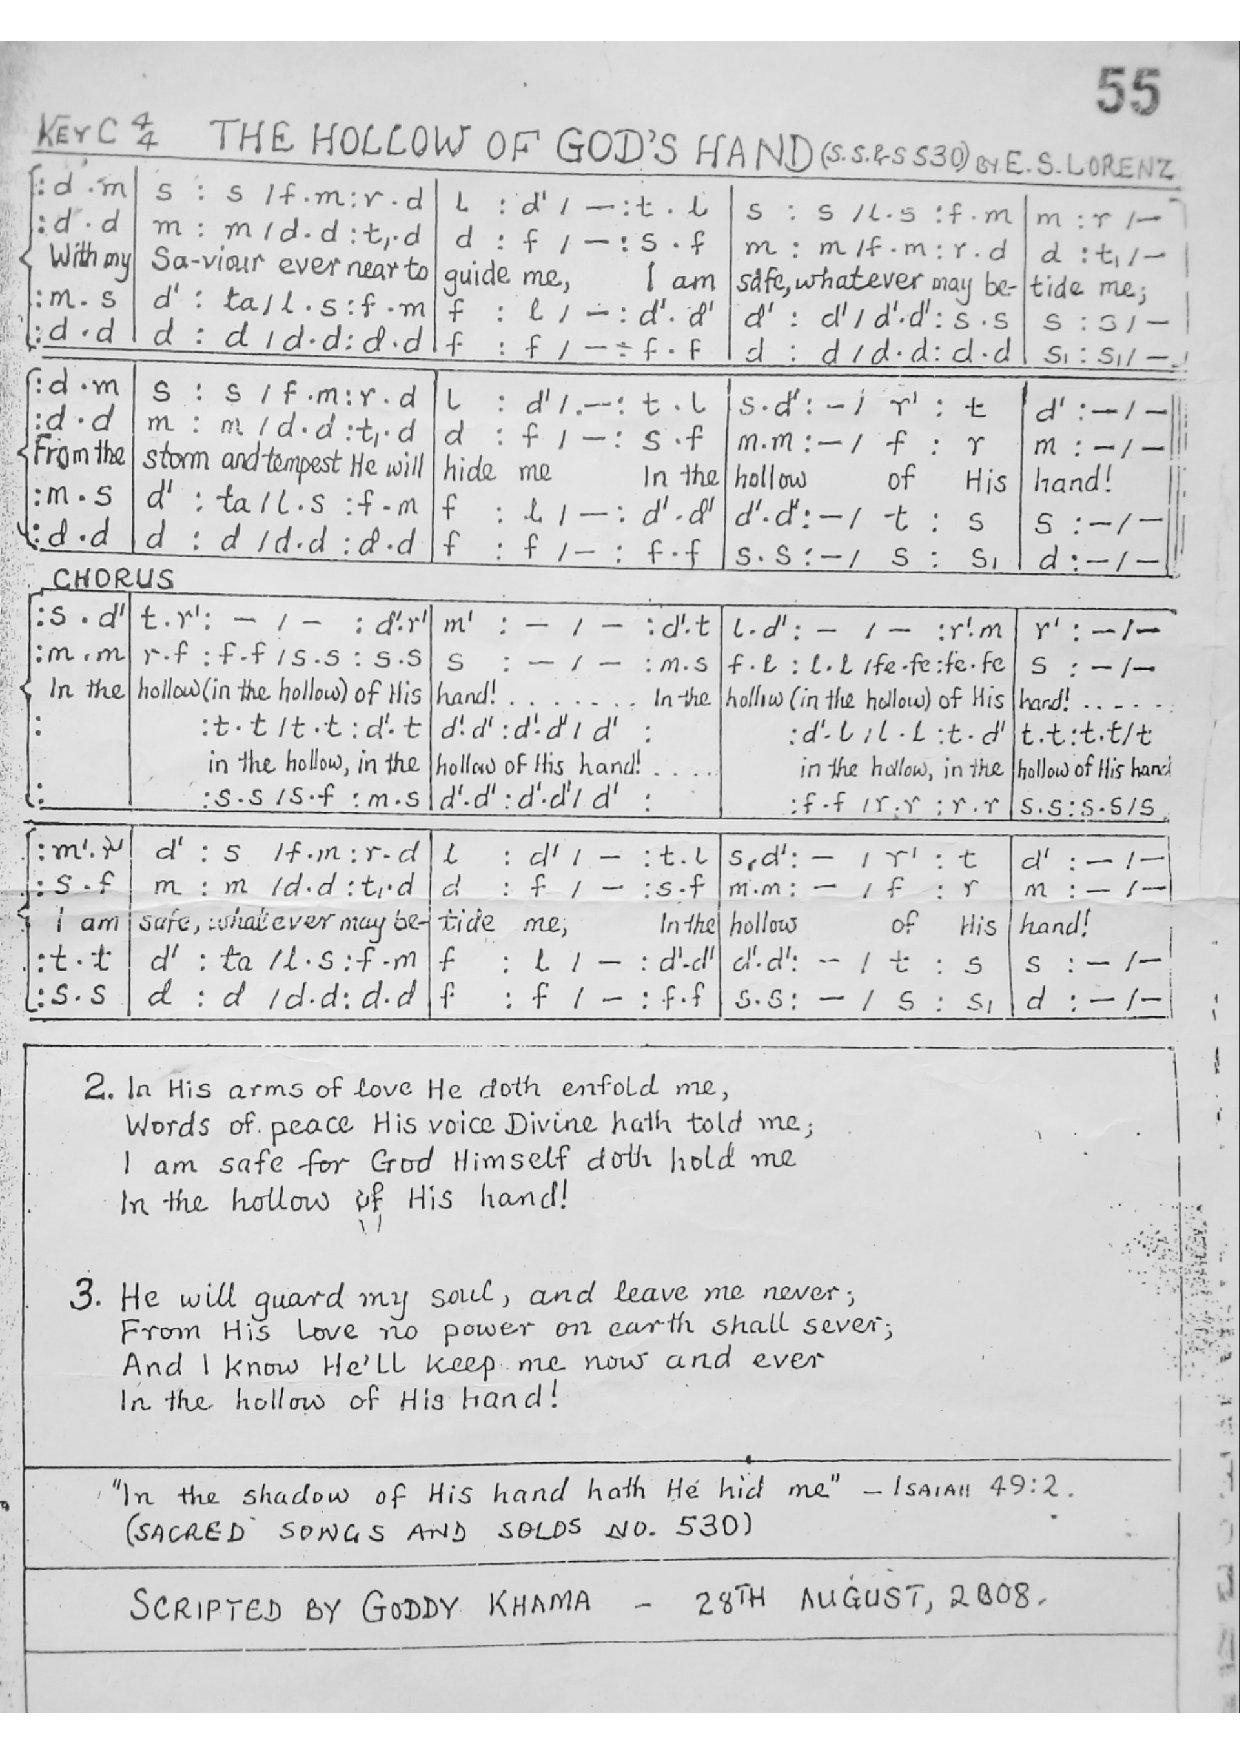 55
KEY C 4/4 THE HOLLOW OF GOD'S HAND (S.S.&S 530) BY E.S.LORENZ
:d .m | s : s /f.m:r.d | l : d' / —:t.l | s : s /l.s :f.m | m : r /—
:d.d | m : m /d.d:t₁.d | d : f / —:s.f | m : m /f.m:r.d | d :t₁/—
With my | Sa-viour ever near to | guide me, I am | safe, whatever may be- | tide me;
:m.s | d' : ta/l.s:f.m | f : l / —:d'.d' | d' : d'/d'.d':s.s | s : s / —
:d.d | d : d /d.d:d.d | f : f / —:f.f | d : d /d.d:d.d | s₁ : s₁/ —
:d.m | s : s /f.m:r.d | l : d' /.—: t.l | s.d':—/ r' : t | d' :—/—
:d.d | m : m /d.d:t₁.d | d : f / —: s.f | m.m:—/ f : r | m :—/—
From the | storm and tempest He will | hide me In the | hollow of His | hand!
:m.s | d' : ta/l.s :f.m | f : l / —: d'.d' | d'.d':—/ t : s | s :—/—
:d.d | d : d /d.d :d.d | f : f / — : f.f | s.s:—/ s : s₁ | d :—/—
CHORUS
:s.d' | t.r': — / — : d'.r' | m' : — / — :d'.t | l.d': — / — :r'.m | r' :—/—
:m.m | r.f :f.f /s.s : s.s | s : — / — :m.s | f.l : l.l /fe.fe:fe.fe | s :—/—
In the | hollow (in the hollow) of His | hand! . . . . . . . In the | hollow (in the hollow) of His | hand! . . . . .
: | :t.t /t.t : d'.t | d'.d' :d'.d'/ d' : | :d'.l /l.l :t.d' | t.t:t.t/t
in the hollow, in the | hollow of His hand! . . . . | in the hollow, in the | hollow of His hand
: | :s.s /s.f : m.s | d'.d' :d'.d'/ d' : | :f.f /r.r : r.r | s.s:s.s/s
:m'.r' | d' : s /f.m:r.d | l : d' / — :t.l | s.d': — / r' : t | d' :—/—
:s.f | m : m /d.d:t₁.d | d : f / — :s.f | m.m: — / f : r | m :—/—
I am | safe, whatever may be- | tide me; In the | hollow of His | hand!
:t.t | d' : ta /l.s:f.m | f : l / — : d'.d' | d'.d': — / t : s | s :—/—
:s.s | d : d /d.d:d.d | f : f / — : f.f | s.s: — / s : s₁ | d :—/—
2. In His arms of love He doth enfold me,
Words of peace His voice Divine hath told me;
I am safe for God Himself doth hold me
In the hollow of His hand!
3. He will guard my soul, and leave me never;
From His love no power on earth shall sever;
And I know He'll keep me now and ever
In the hollow of His hand!
"In the shadow of His hand hath He hid me" — ISAIAH 49:2.
(SACRED SONGS AND SOLOS NO. 530)
SCRIPTED BY GODDY KHAMA — 28TH AUGUST, 2008.